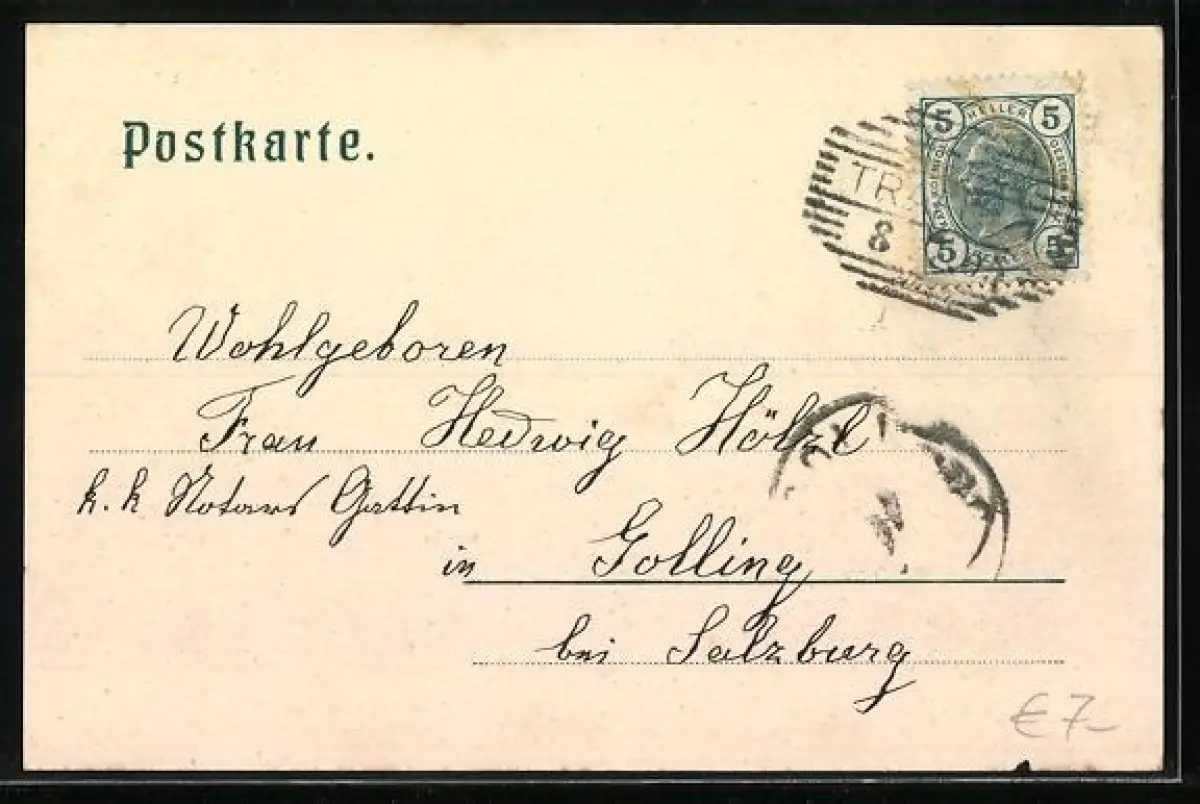 Postkarte.
5 HELLER 5
TR
8
5 5
Wohlgeboren
Frau Hedwig Hölzl
k. k. Notars Gattin
in Golling
bei Salzburg
€ 7-